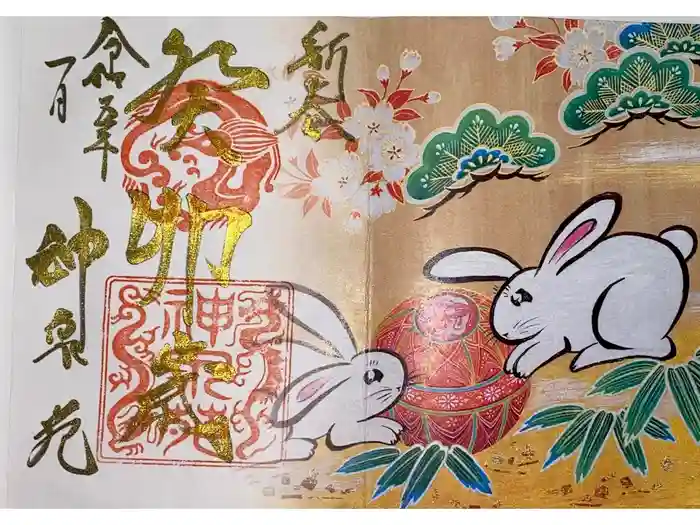 新春
癸卯歳
令和五年
一月
神泉苑
神泉苑